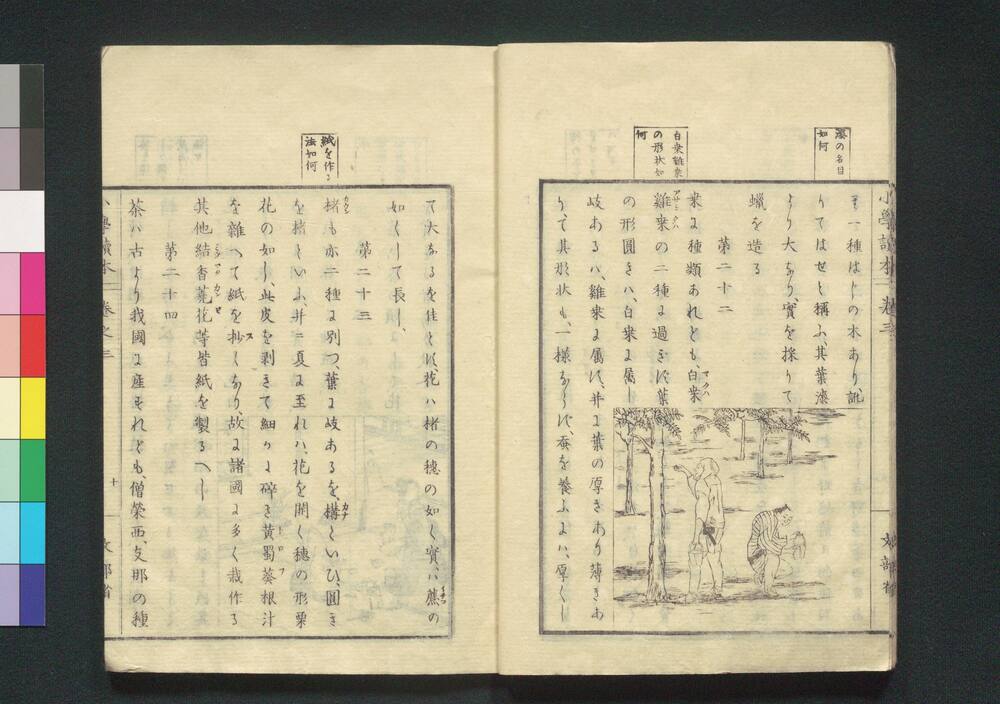 漆の名目
如何
も一種はじの木あり、訛
りてはぜと稱ふ、其葉漆
より大なり、實を採りて
蠟を造る
第二十二
白桒雞桒
の形状如
何
桒は種類あれとも、白桒
雞桒の二種に過きす、葉
の形圓きハ、白桒に屬し
岐あるハ、雞桒に屬す、并に葉の厚きあり薄きあ
りて、其形状も、一様ならす、蚕を養ふにハ、厚くし
小學讀本 巻之三
文部省
て大なるを佳とす、花ハ楮の穗の如く實ハ
如くして長し、
第二十三
紙を作る
法如何
楮も亦二種に別つ、葉に岐あるを、構といひ、圓き
を楮といふ、并ニ夏に至れハ、花を開く穗の形栗
花の如し、此皮を剥きて細かに碎き黄蜀葵根汁
を雜へて紙を抄くなり、故に諸國に多く栽作る
其他結香蕘花等皆紙を製るへし
第二十四
茶ハ古より我國に産すれとも、僧榮西、支那の種
小學讀本 巻之三
十
文部省